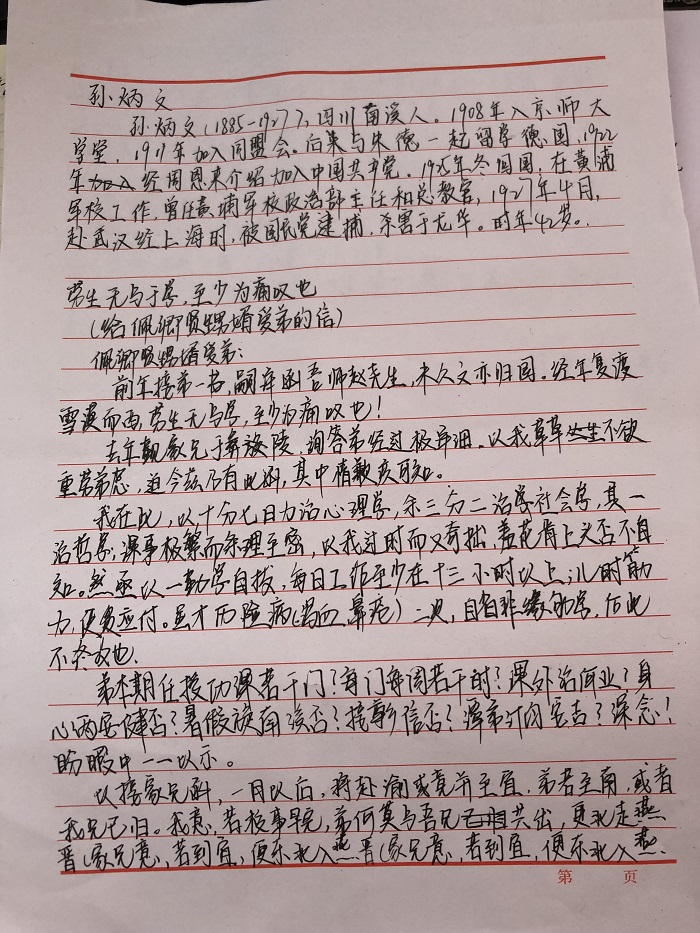 孙炳文
孙炳文(1885-1927),四川南溪人。1908年入京师大
学堂,1911年加入同盟会。后来与朱德一起留学德国,1922
年加入经周恩来介绍加入中国共产党。1925年冬回国,在黄浦
军校工作,曾任黄埔军校政治部主任和总教官,1927年4月,
赴武汉经上海时,被国民党逮捕,杀害于龙华。时年42岁。
劳生无与于学,至少为痛叹也
(给佩卿贤甥婿爱弟的信)
佩卿贤甥婿爱弟:
前年接弟一书,嗣弃函吾师赵先生,未久文亦归国。经年复渡
雪漠而西,劳生无与学,至少为痛叹也!
去年觐家兄于舞涪陵,询答弟经过极详细。以我草草
重劳弟忘,迨今兹乃有此函,其中情歉疚可知。
我在此,以十分七日力治心理学,余三分二治学社会学,其一
治哲学,课事极繁而条理至密,以我过时而又奇拙,羞花肯上头否不自
知。然亟以一勤学自拔,每日工作至少在十三小时以上;儿时筋
力,便费应付。虽才历险病(鼻疮)二次,自省非缘勤学,
不介也。
弟本期任授功课若干门?每门每周若干时?课外治何业?身
心两安健否?暑假旋南溪否?接信否?泽弟订肉宝吉?深念!
盼暇中一一以示。
以接家兄函,一月以后,将赴渝或竟弃至宜,弟若至南,或者
我兄已归。我意,若校事早完,弟何莫与吾兄共出,更北走燕
晋(家兄意,若到宜,便东北入燕晋(家兄意,若到宜,便东北入燕
第 页